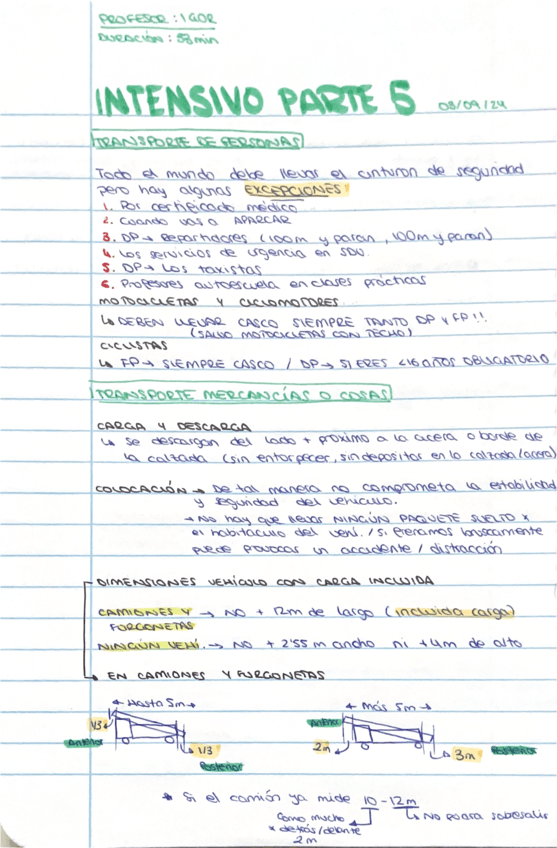 PROFESOR: IGOR
DURACIÓN: 58 min
INTENSIVO PARTE 6 03/09/24
TRANSPORTE DE PERSONAS
Todo el mundo debe llevar el cinturon de seguridad
pero hay algunas EXCEPCIONES:
1. Por certificado médico
2. Cuando vas a APARCAR
3. DP → Repartidores (100m y paran, 100m y paran)
4. Los servicios de urgencia en SDU.
5. DP → Los taxistas
6. Profesores autoescuela en clases prácticas
MOTOCICLETAS Y CICLOMOTORES
↳ DEBEN LLEVAR CASCO SIEMPRE TANTO DP y FP!!
(SALVO MOTOCICLETAS CON TECHO)
CICLISTAS
↳ FP → SIEMPRE CASCO / DP → SI ERES <16 AÑOS OBLIGATORIO
TRANSPORTE MERCANCÍAS O COSAS
CARGA Y DESCARGA
↳ Se descargan del lado + próximo a la acera o borde de
la calzada (sin entorpecer, sin depositar en la calzada/acera)
COLOCACIÓN → De tal manera no comprometa la estabilidad
y seguridad del vehículo.
→ No hay que llevar NINGÚN PAQUETE SUELTO x
el habitáculo del vehí. / Si frenamos bruscamente
puede provocar un accidente / distracción
DIMENSIONES VEHÍCULO CON CARGA INCLUIDA
CAMIONES Y → NO + 12m de largo (incluida carga)
FURGONETAS
NINGÚN VEHÍ. → NO + 2'55 m ancho ni +4m de alto
↳ EN CAMIONES Y FURGONETAS
← Hasta 5m → ← Más 5m →
1/3 Anterior 1/3 Posterior
Anterior 2m 3m Posterior
* Si el camión ya mide 10 - 12m
Como mucho ↲ ↳ No podra sobresalir
x detrás/delante
2m